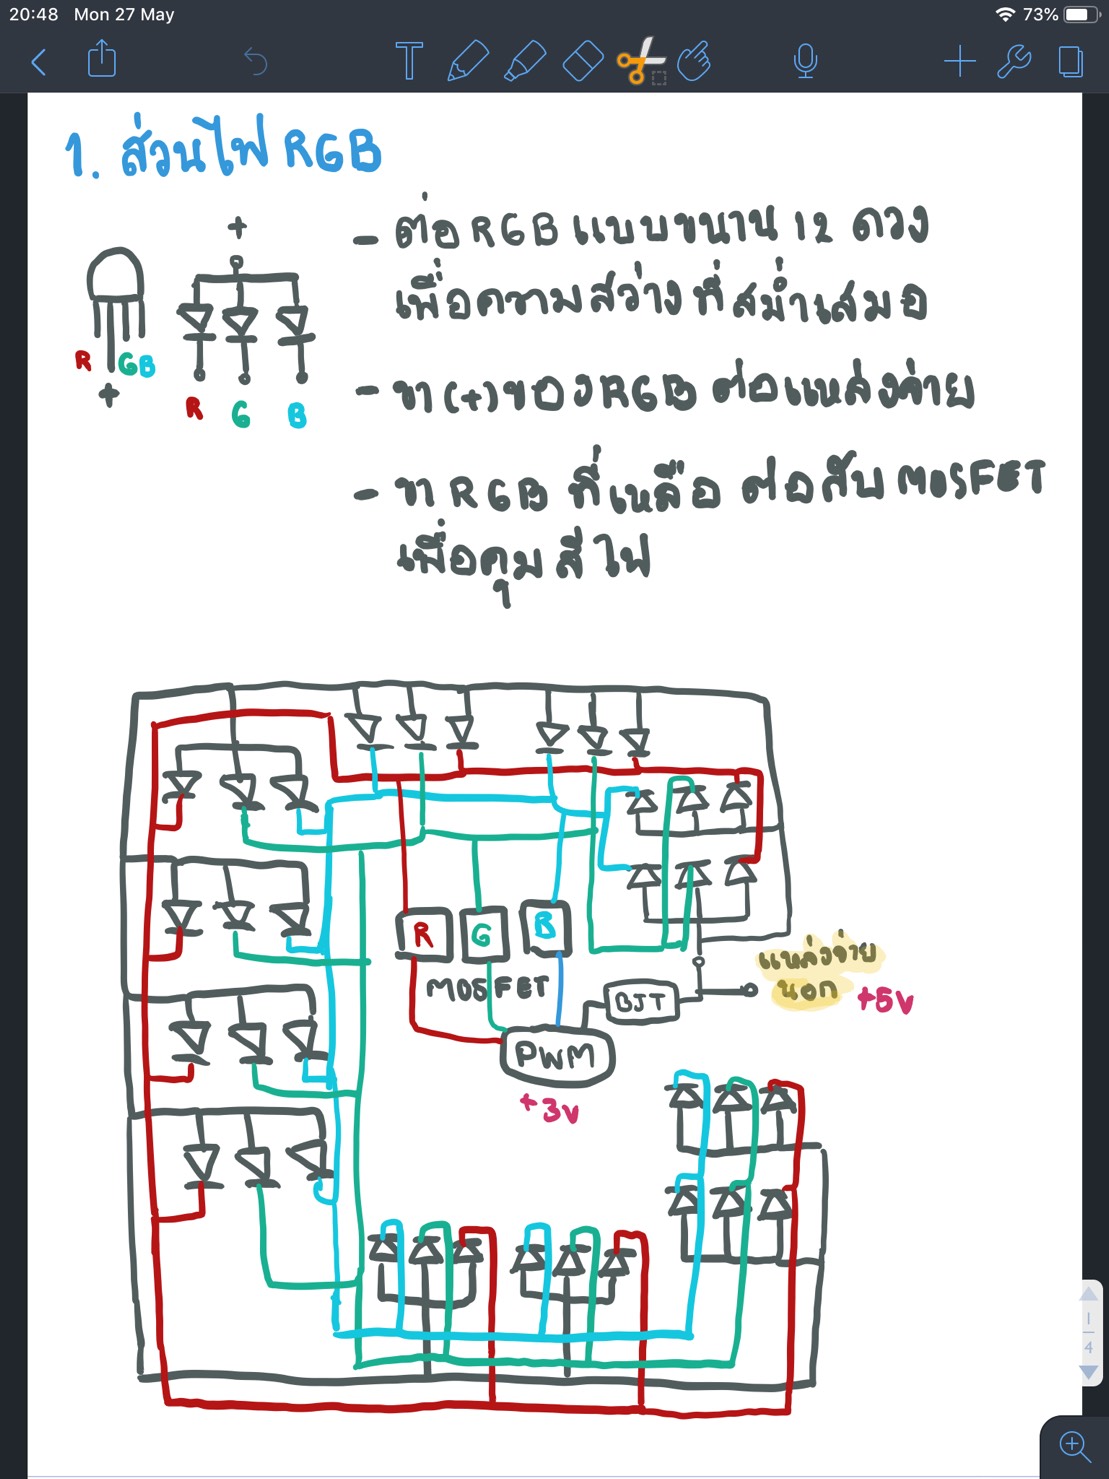 20:48 Mon 27 May
73%
1. ส่วนไฟ RGB
+
- ต่อ RGB แบบขนาน 12 ดวง
เพื่อความสว่างที่สม่ำเสมอ
R GB
+
- ขา (+) ของ RGB ต่อแหล่งจ่าย
R G B
- ขา RGB ที่เหลือ ต่อกับ MOSFET
เพื่อคุมสีไฟ
R G B
MOSFET
แหล่งจ่าย
นอก +5V
BJT
PWM
+3V
1
4